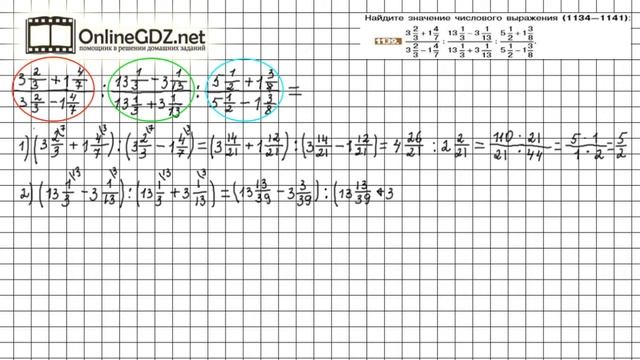 OnlineGDZ.net
помощник в решении домашних заданий
Найдите значение числового выражения (1134—1141):
1139. (3 2/3 + 1 4/7)/(3 2/3 - 1 4/7) : (13 1/3 - 3 1/13)/(13 1/3 + 3 1/13) : (5 1/2 + 1 3/8)/(5 1/2 - 1 3/8).
(3 2/3 + 1 4/7)/(3 2/3 - 1 4/7) : (13 1/3 - 3 1/13)/(13 1/3 + 3 1/13) : (5 1/2 + 1 3/8)/(5 1/2 - 1 3/8) =
1) (3 2/3 \7 + 1 4/7 \3) : (3 2/3 \7 - 1 4/7 \3) = (3 14/21 + 1 12/21) : (3 14/21 - 1 12/21) = 4 26/21 : 2 2/21 = 110 · 21/21 · 44 = 5 · 1/1 · 2 = 5/2
2) (13 1/3 \13 - 3 1/13 \3) : (13 1/3 \13 + 3 1/13 \3) = (13 13/39 - 3 3/39) : (13 13/39 + 3